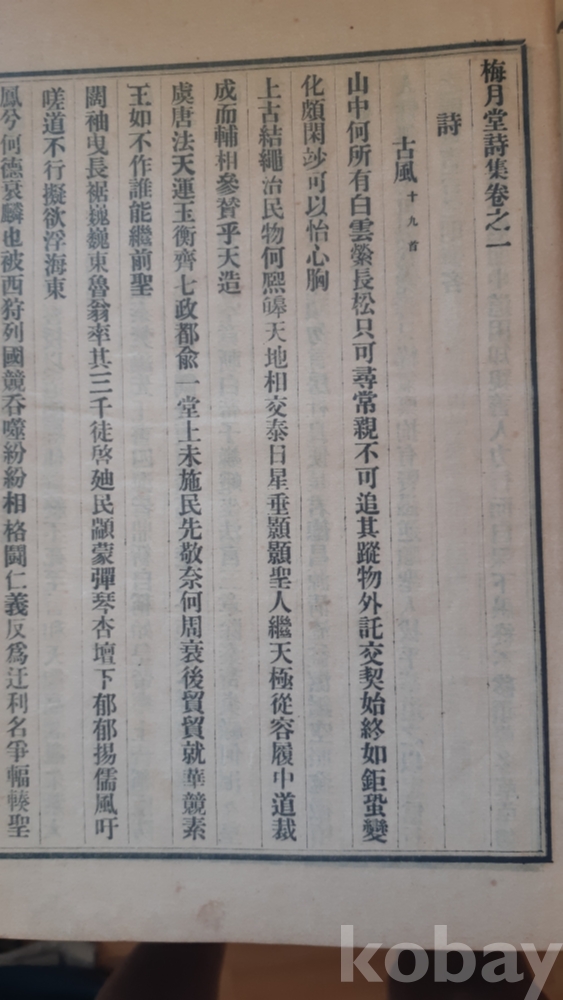 梅月堂詩集卷之一
詩
古風 十九首
山中何所有白雲縈長松只可尋常親不可追其蹤物外託交契始終如鉅蛩變
化頗閑竗可以怡心胸
上古結繩治民物何熈皞天地相交泰日星垂顥顥聖人繼天極從容履中道裁
成而輔相參贊乎天造
虞唐法天運玉衡齊七政都兪一堂上未施民先敬奈何周衰後貿貿就華競素
王如不作誰能繼前聖
闊袖曳長裾巍巍東魯翁率其三千徒啓廸民顓蒙彈琴杏壇下郁郁揚儒風吁
嗟道不行擬欲浮海東
鳳兮何德衰麟也被西狩列國競吞噬紛紛相格鬪仁義反爲迂利名爭輻輳聖
kobay